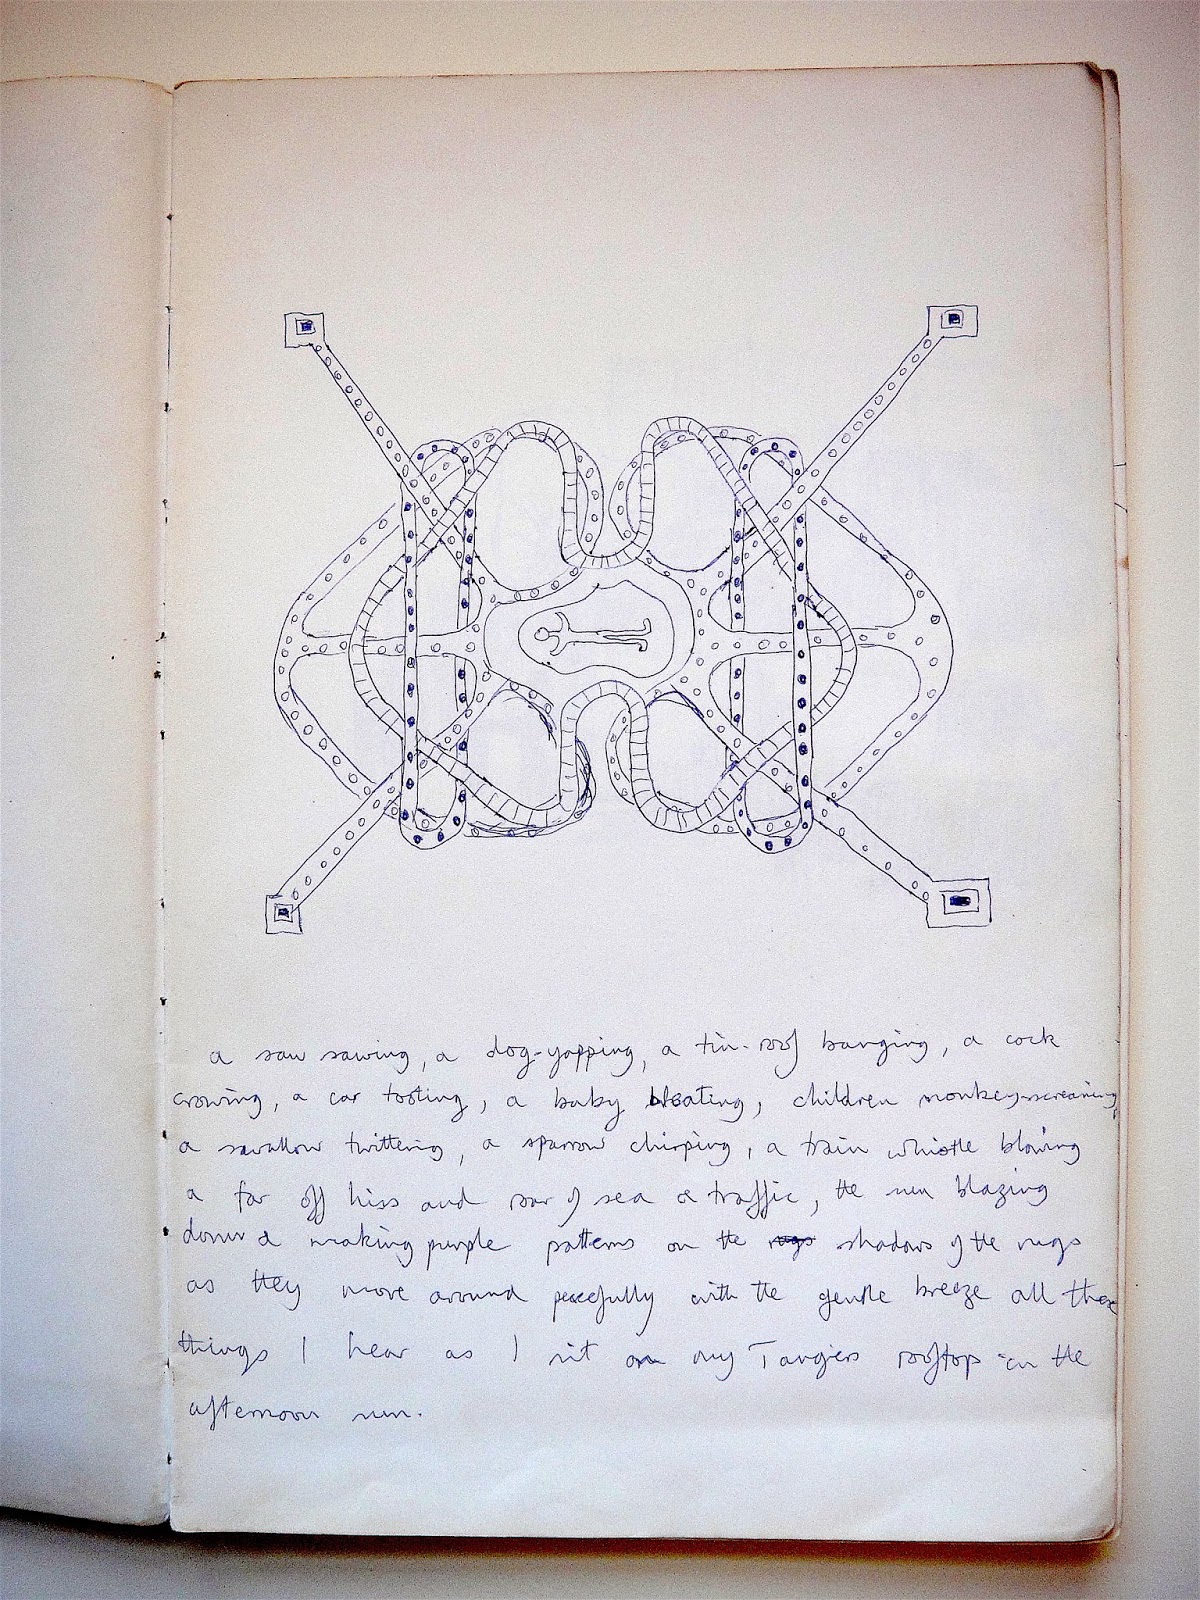 a saw sawing, a dog-yapping, a tin-roof banging, a cock
crowing, a car tooting, a baby bleating, children monkey-screaming,
a swallow twittering, a sparrow chirping, a train whistle blowing
a far off hiss and roar of sea & traffic, the sun blazing
down & making purple patterns on the rugs shadows of the rugs
as they move around peacefully with the gentle breeze all these
things I hear as I sit on my Tangiers rooftop in the
afternoon sun.